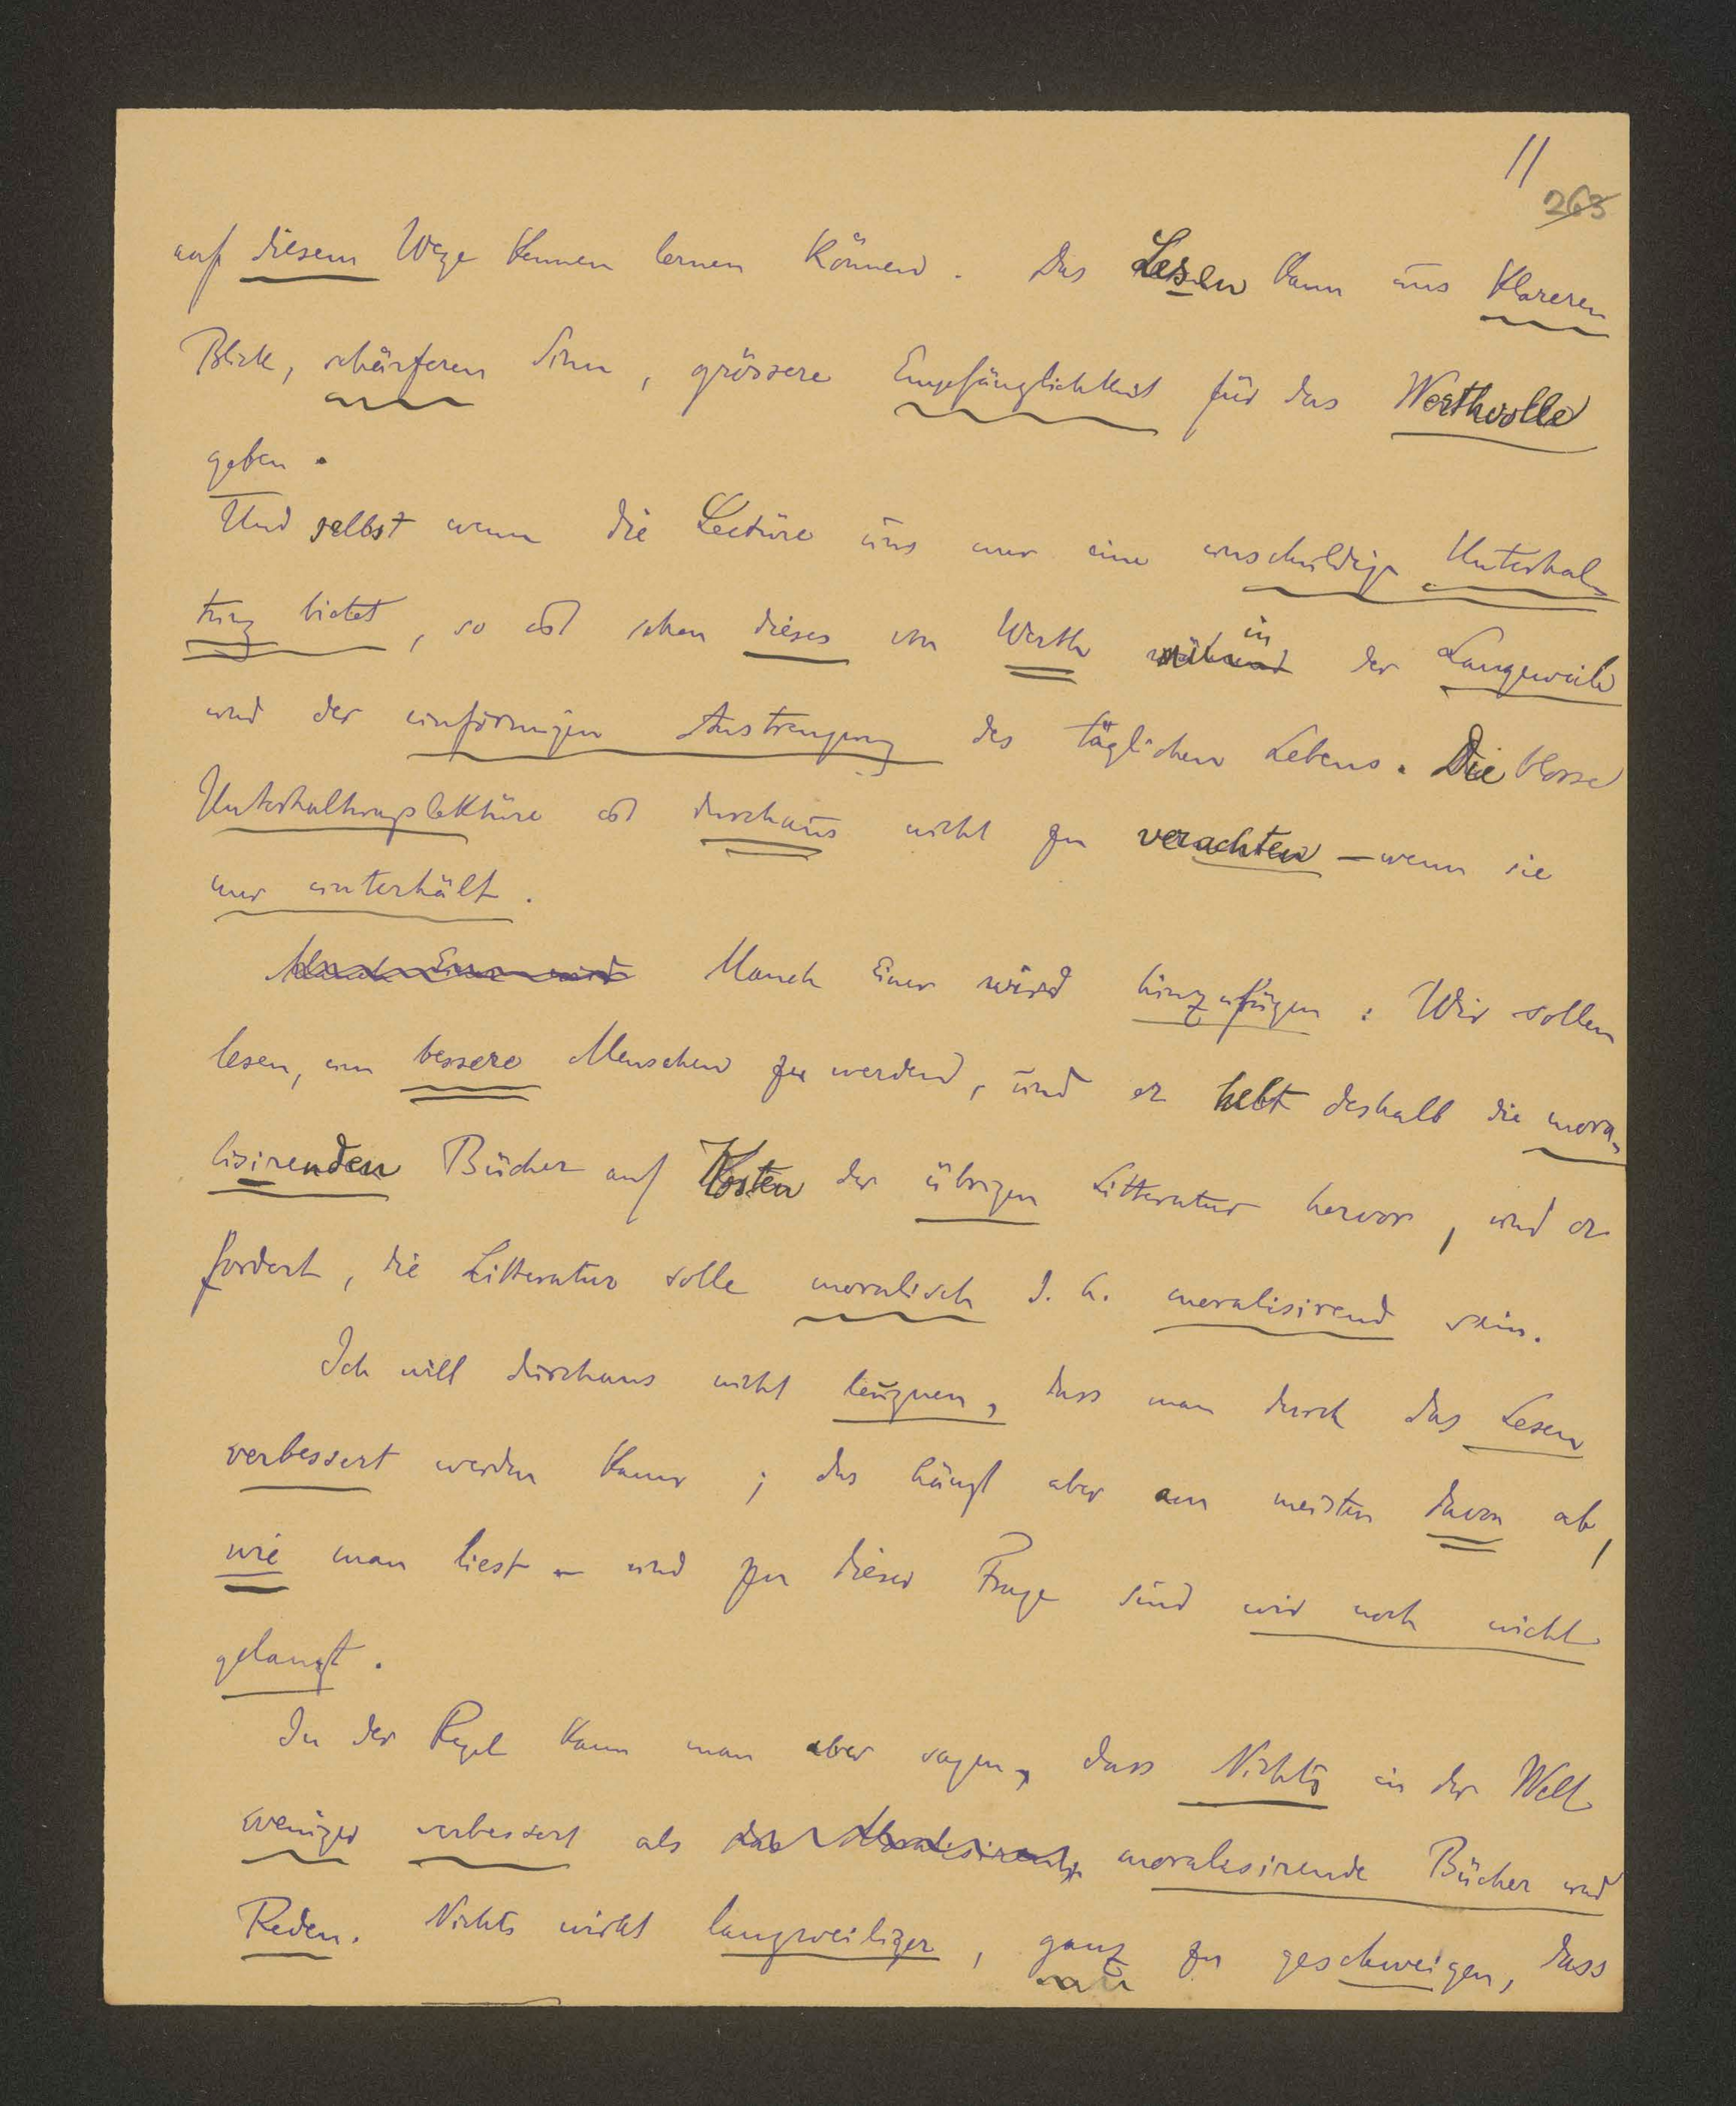 11
263
auf diesem Wege kennen lernen können. Das Lesen kann uns klareren
Blick, schärferen Sinn, grössere Empfänglichkeit für das Werthvolle
geben.
Und selbst wenn die Lectüre uns nur eine unschuldige Unterhal-
tung bietet, so ist schon dieses von Werth während in der Langeweile
und der einförmigen Anstrengung des täglichen Lebens. Die blosse
Unterhaltungslektüre ist durchaus nicht zu verachten – wenn sie
nur unterhält.
Manch Einer wird Manch Einer wird hinzufügen: Wir sollen
lesen, um bessere Menschen zu werden, und er hebt deshalb die mora-
lisirenden Bücher auf Kosten der übrigen Litteratur hervor, und er
fordert, die Litteratur solle moralisch d. h. moralisirend sein.
Ich will durchaus nicht leugnen, dass man durch das Lesen
verbessert werden kann; das hängt aber am meisten davon ab,
wie man liest – und zu dieser Frage sind wir noch nicht
gelangt.
In der Regel kann man aber sagen, dass Nichts in der Welt
weniger verbessert als das Moralisirende moralisirende Bücher und
Reden. Nichts wirkt langweiliger, ganz zu geschweigen, dass